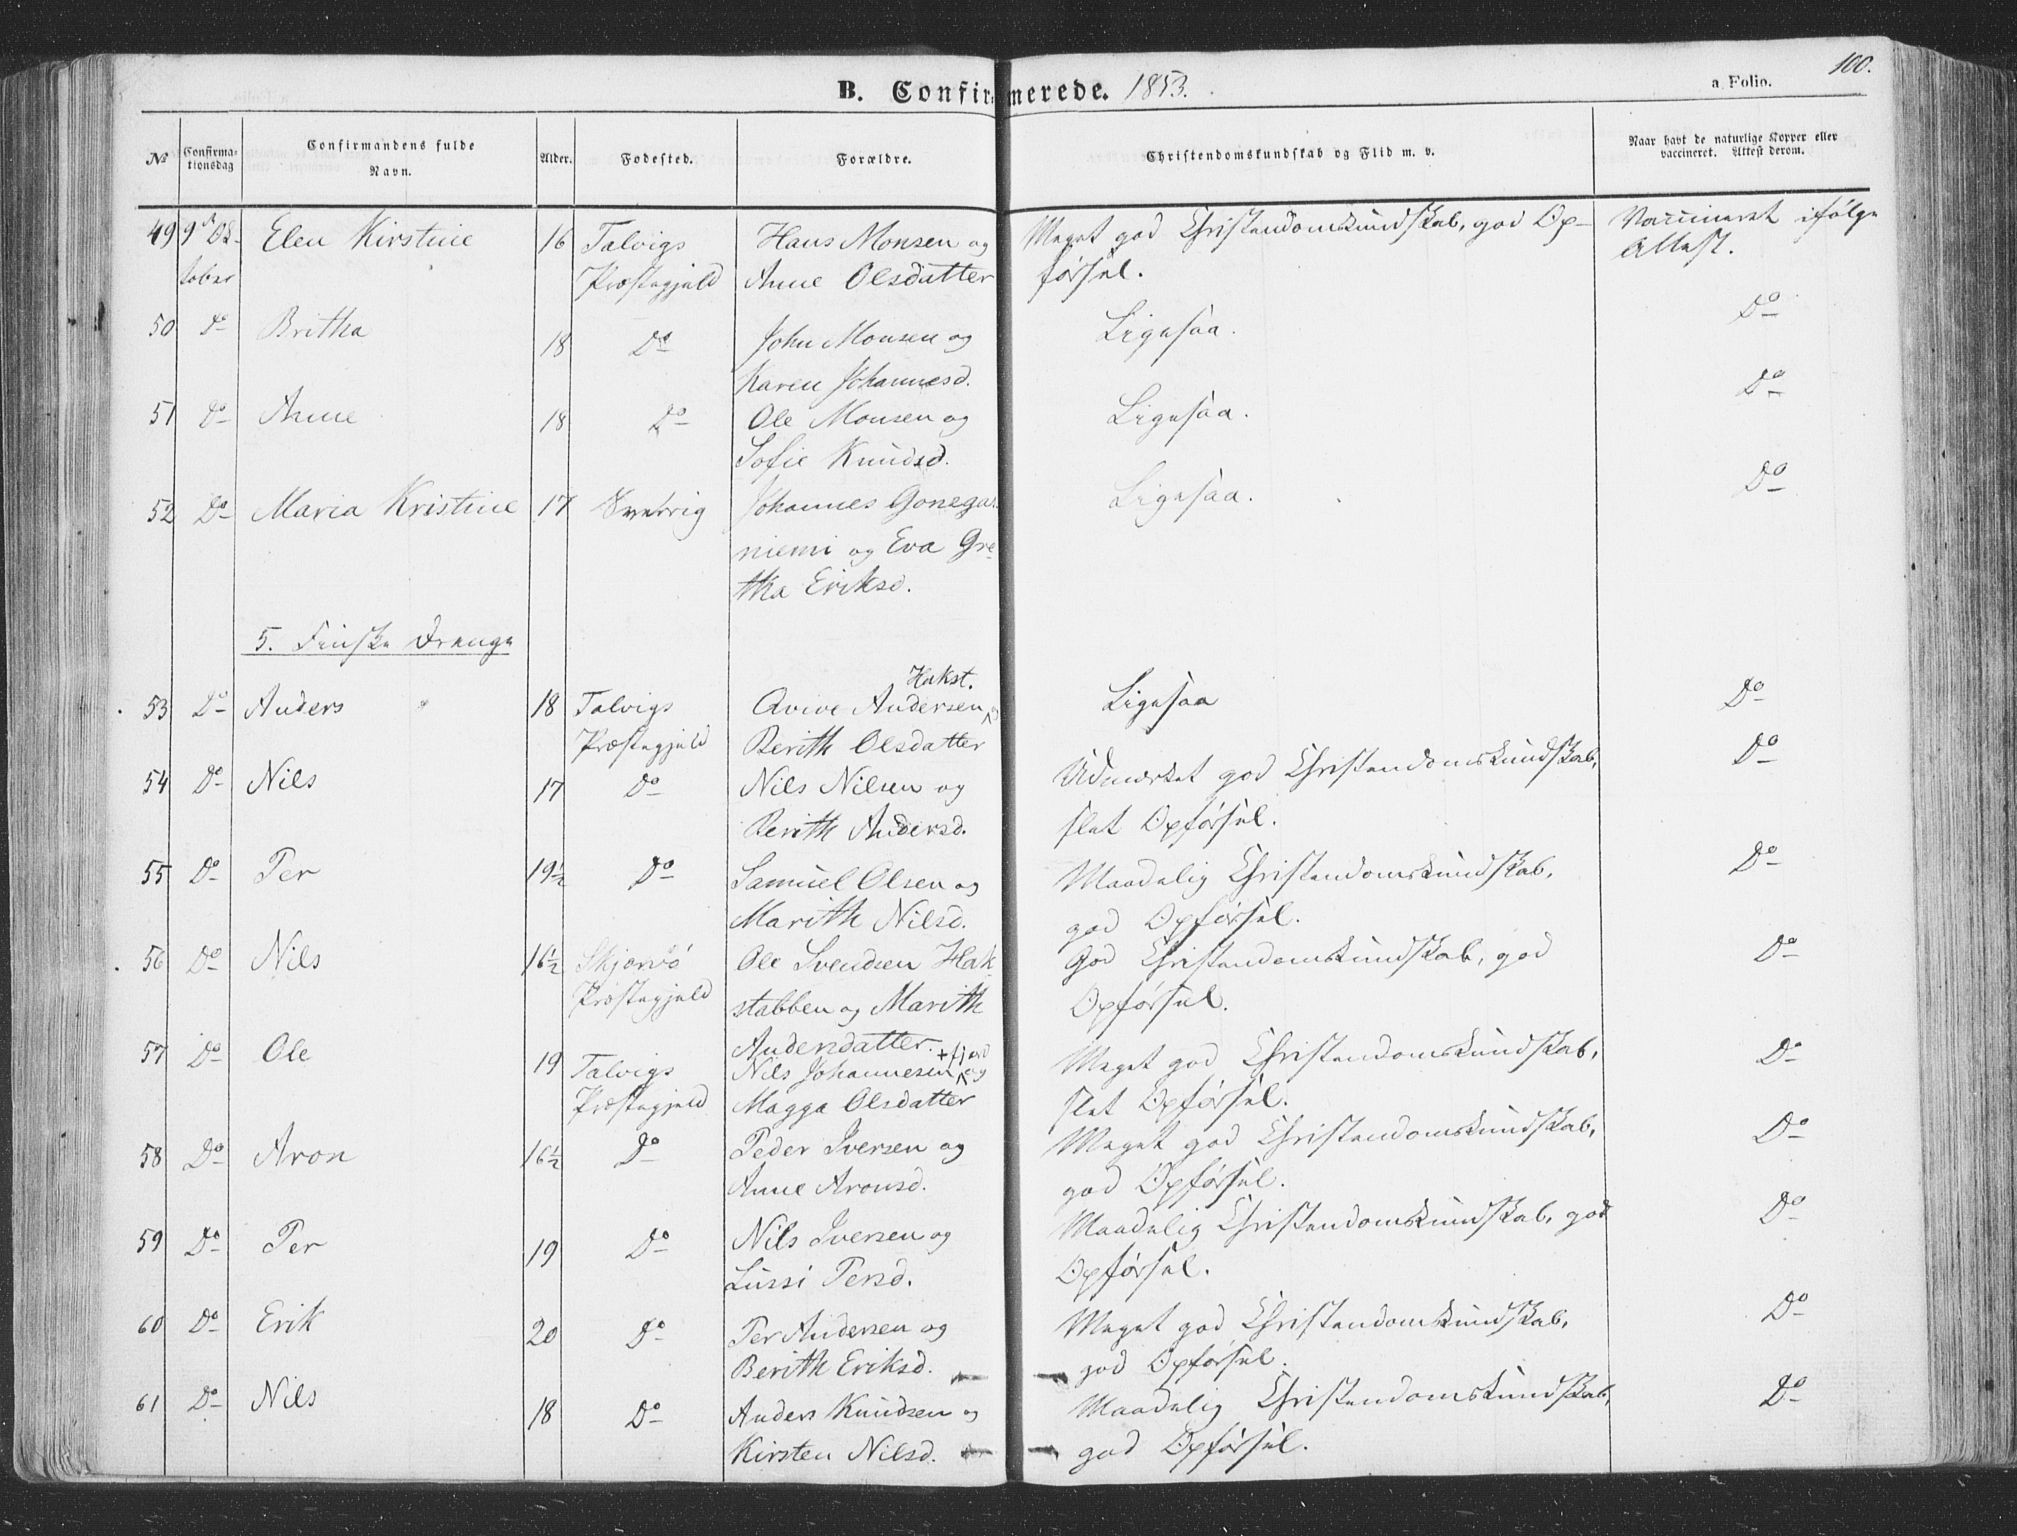 100.
B. Confirmerede. 1853.
a Folio.
No
Confirma-
tionsdag
Confirmandens fulde
Navn.
Alder.
Fødested.
Forældre.
Christendomskundskab og Flid m. v.
Naar havt de naturlige Kopper eller
vaccineret. Attest derom.
49 9d Ok- Elen Kirstine 16 Talvigs Hans Monsen og Meget god Christendomskundskab, god Op- Vaccineret ifølge
tober Præstegjeld Anne Olsdatter førsel. Attest.
50 Do Britha 18 Do John Monsen og Ligesaa. Do
Karen Johannesd.
51 Do Anne 18 Do Ole Monsen og Ligesaa. Do
Sofie Knudsd.
52 Do Maria Kristine 17 Sverrig Johannes Gonega- Ligesaa. Do
niemi og Eva Gre-
tha Eriksd.
5. Finske Drenge
Hakst.
53 Do Anders 18 Talvigs Avive Andersen og Ligesaa Do
Præstegjeld Berith Olsdatter
54 Do Nils 17 Do Nils Nilsen og Udmærket god Christendomskundskab, Do
Berith Andersd. slet Opførsel.
55 Do Per 19½ Do Samuel Olsen og Maadelig Christendomskundskab, Do
Marith Nilsd. god Opførsel.
56 Do Nils 16½ Skjervö Ole Svendsen Hak- God Christendomskundskab, god Do
Præstegjeld stabben og Marith Opførsel.
Andersdatter.
+fjord
57 Do Ole 19 Talvigs Nils Johannesen og Meget god Christendomskundskab, Do
Præstegjeld Magga Olsdatter slet Opførsel.
58 Do Aron 16½ Do Peder Iversen og Meget god Christendomskundskab, Do
Anne Aronsd. god Opførsel.
59 Do Per 19 Do Nils Iversen og Maadelig Christendomskundskab, god Do
Lussi Persd. Opførsel.
60 Do Erik 20 Do Per Andersen og Meget god Christendomskundskab, Do
Berith Eriksd. god Opførsel.
61 Do Nils 18 Do Anders Knudsen og Maadelig Christendomskundskab, Do
Kirsten Nilsd. god Opførsel.